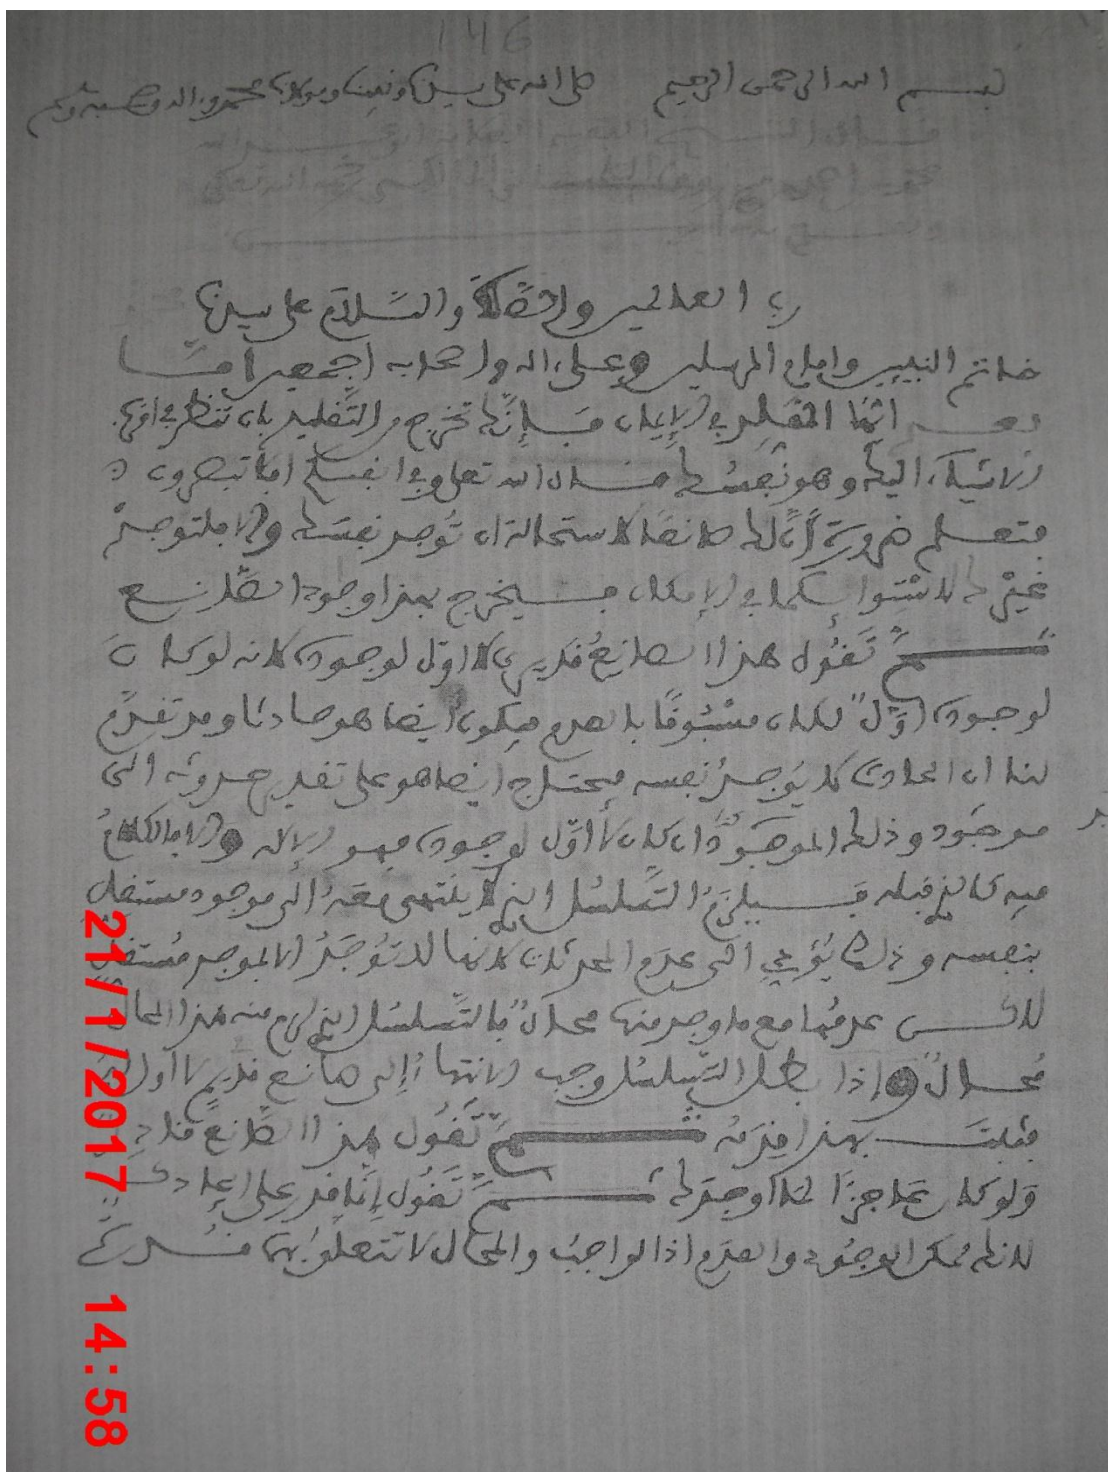 146
بسم الله الرحمن الرحيم صلى الله على سيدنا ونبينا ومولانا محمد وءاله وصحبه وسلم
قال الشيخ الفقيه
رحمه الله تعالى
رب العالمين والصلاة والسلام على سيدنا
خاتم النبيين وإمام المرسلين وعلى ءاله وأصحابه أجمعين
أيها المقلد في الإيمان فإنك تخرج من التقليد بأن تنظر في أقرب
الأشياء إليك وهو نفسك قال الله تعلى وفي أنفسكم أفلا تبصرون
فتعلم ضرورة أن لك صانعا لاستحالة أن توجد نفسك وإلا فلتوجد
غيرك لاستوائكما في الإمكان فيخرج بهذا وجود الصانع
ثم تقول هذا الصانع قديم لا أول لوجوده لأنه لو كان
لوجوده أول لكان مسبوقا بالعدم فيكون أيضا هو حادثا وقد تقدم
لنا أن الحادث لا يوجد نفسه فيحتاج أيضا هو على تقدير حدوثه الى
موجد وذلك الموجد إن كان لا أول لوجوده فهو الإله وإلا فالكلام
فيه كالذي قبله فيلزم التسلسل الذي لا ينتهي معه إلى موجود مستقل
بنفسه وذلك يؤدي الى عدم المحدثات لأنها لا توجد إلا بموجد مستقل
لاكن عدمها مع ما وجد منها محال فالتسلسل الذي لزم منه هذا المحال
محال وإذا بطل التسلسل وجب الانتهاء إلى صانع قديم لا أول
فثبت بهذا قدمه ثم تقول هذا الصانع قادر
ولو كان عاجزا لما أوجدك ثم تقول إنما قدر على إيجادك
لانك ممكن الوجود والعدم اذ الواجب والمحال لا تتعلق بهما قدرة
21/1/2017 14:58